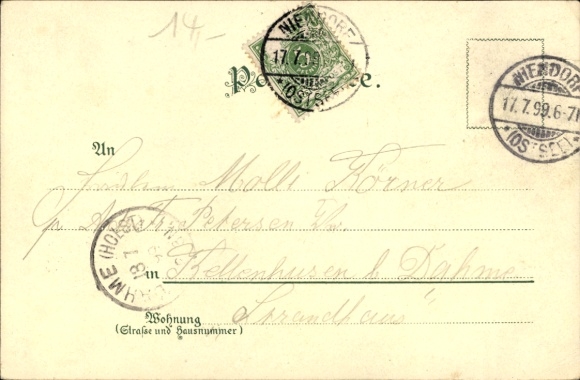 14.-
NIENDORF
17.7.99
*(OSTSEE)*
NIENDORF
17.7.99.6-7N
*(OSTSEE)*
An
Fräulein Molli Körner
Petersen
in Kellenhusen b Dahme
DAHME (HOLST.)
18 7
Wohnung
(Straße und Hausnummer)
Strandhaus"